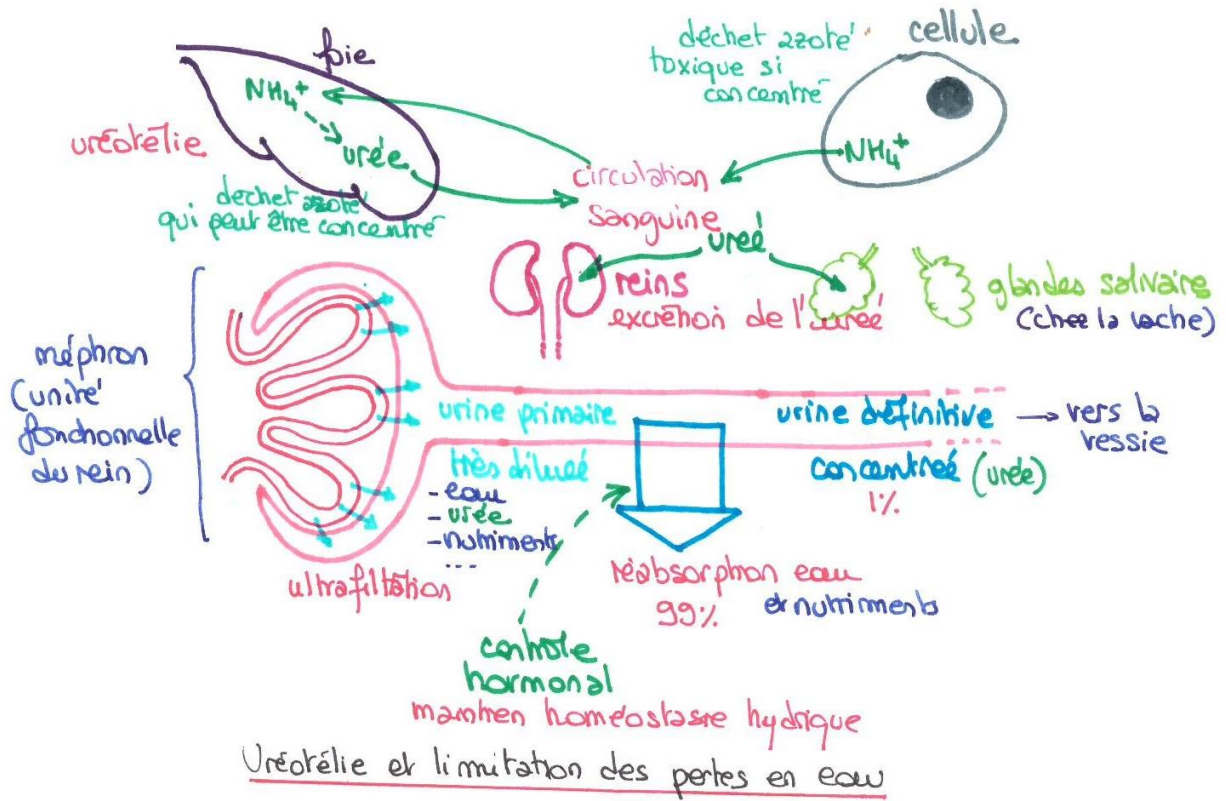 foie
NH₄⁺
urée
uréotélie
déchet azoté
qui peut être concentré
déchet azoté
toxique si
concentré
cellule
NH₄⁺
circulation
sanguine
ureé
reins
excrétion de l'ureé
glandes salivaire
(chez la vache)
néphron
(unité
fonctionnelle
du rein)
urine primaire
très dilueé
- eau
- urée
- nutriments
...
ultrafiltation
urine définitive
concentreé (urée)
1%
→ vers la
vessie
réabsorption eau
et nutriments
99%
contrôle
hormonal
maintien homéostasie hydrique
Uréotélie et limitation des pertes en eau